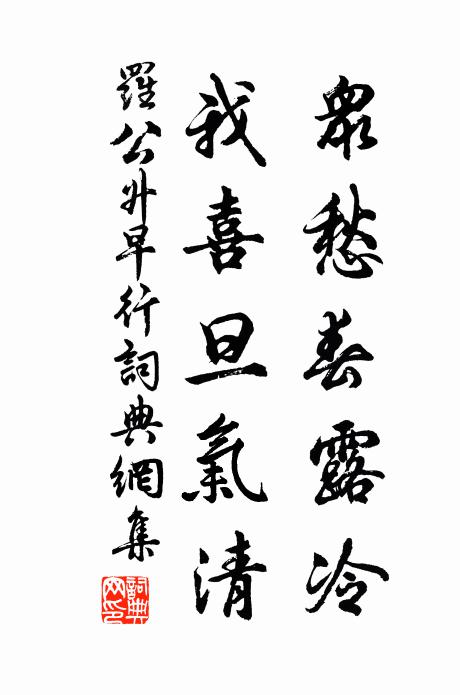 眾愁春露冷
我喜旦氣清
羅公升早行詞典網集
詞典網印